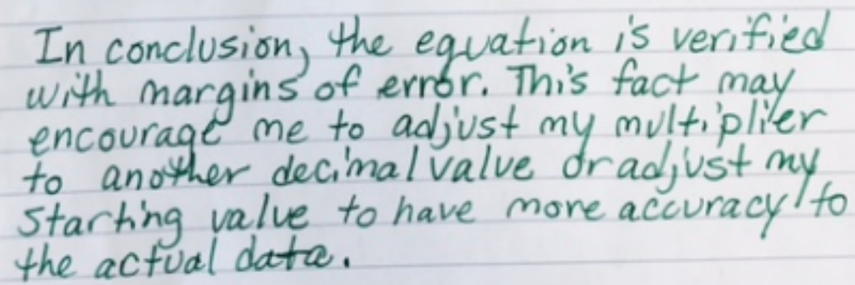 In conclusion, the equation is verified
with margins of error. This fact may
encourage me to adjust my multiplier
to another decimal value or adjust my
starting value to have more accuracy to
the actual data.